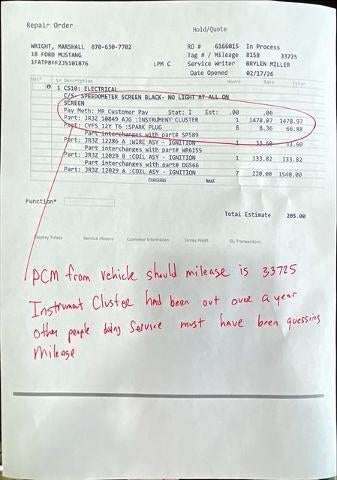 Repair Order
Hold/Quote
WRIGHT, MARSHALL 870-630-7702 RO # 6166015 In Process
18 FORD MUSTANG Tag # / Mileage 8158 33725
1FATP8FF2J5101876 LPM C Service Writer BRYLEN MILLER
Date Opened 02/17/26
Hours Rate Total
1 CS10: ELECTRICAL
C/S: SPEEDOMETER SCREEN BLACK- NO LIGHT AT ALL ON
SCREEN
Pay Meth: MR Customer Pay Stat: I Est: .00 .00
Part: JR3Z 10849 AJG :INSTRUMENT CLUSTER 1 1478.97 1478.97
Part: CYFS 12Y T6 :SPARK PLUG 8 8.36 66.88
Part interchanges with part# SP589
Part: JR3Z 12286 A :WIRE ASY - IGNITION 1 33.60 33.60
Part interchanges with part# WR6155
Part: JR3Z 12029 B :COIL ASY - IGNITION 1 133.82 133.82
Part interchanges with part# DG566
Part: JR3Z 12029 A :COIL ASY - IGNITION 7 220.00 1540.00
Previous Next
Function*
Total Estimate 205.00
Display Totals Service History Customer Information Gross Profit GL Transactions
PCM from vehicle should mileage is 33725
Instrument Cluster had been out over a year
other people doing service must have been guessing
mileage